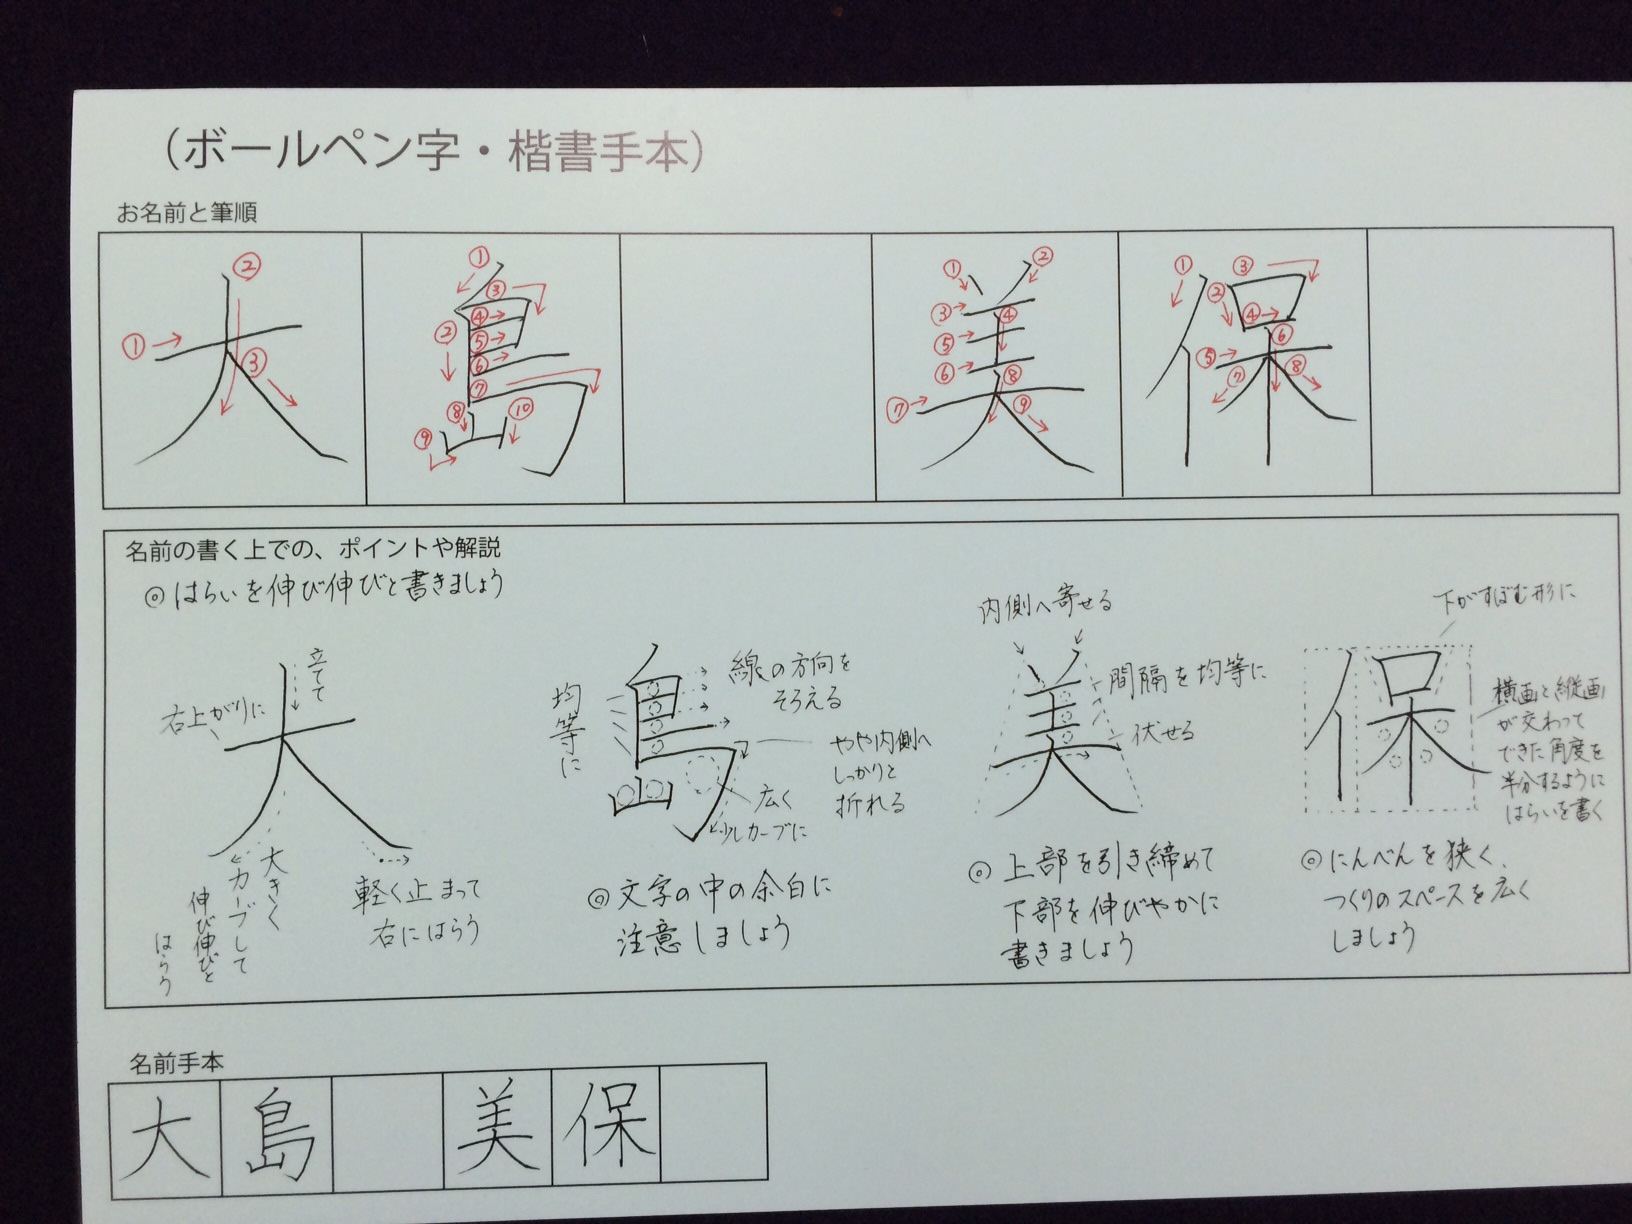 (ボールペン字・楷書手本)
お名前と筆順
大 島 美 保
① ② ③
① ② ③ ④ ⑤ ⑥ ⑦ ⑧ ⑨ ⑩
① ② ③ ④ ⑤ ⑥ ⑦ ⑧ ⑨
① ② ③ ④ ⑤ ⑥ ⑦ ⑧
名前の書く上での、ポイントや解説
◎はらいを伸び伸びと書きましょう
大
立てて
右上がりに
大きく
カーブして
伸び伸びと
はらう
軽く止まって
右にはらう
島
均等に
線の方向を
そろえる
やや内側へ
しっかりと
折れる
広く
少しカーブに
◎文字の中の余白に
注意しましょう
美
内側へ寄せる
間隔を均等に
伏せる
◎上部を引き締めて
下部を伸びやかに
書きましょう
保
下がすぼむ形に
横画と縦画
が交わって
できた角度を
半分するように
はらいを書く
◎にんべんを狭く、
つくりのスペースを広く
しましょう
名前手本
大 島 美 保